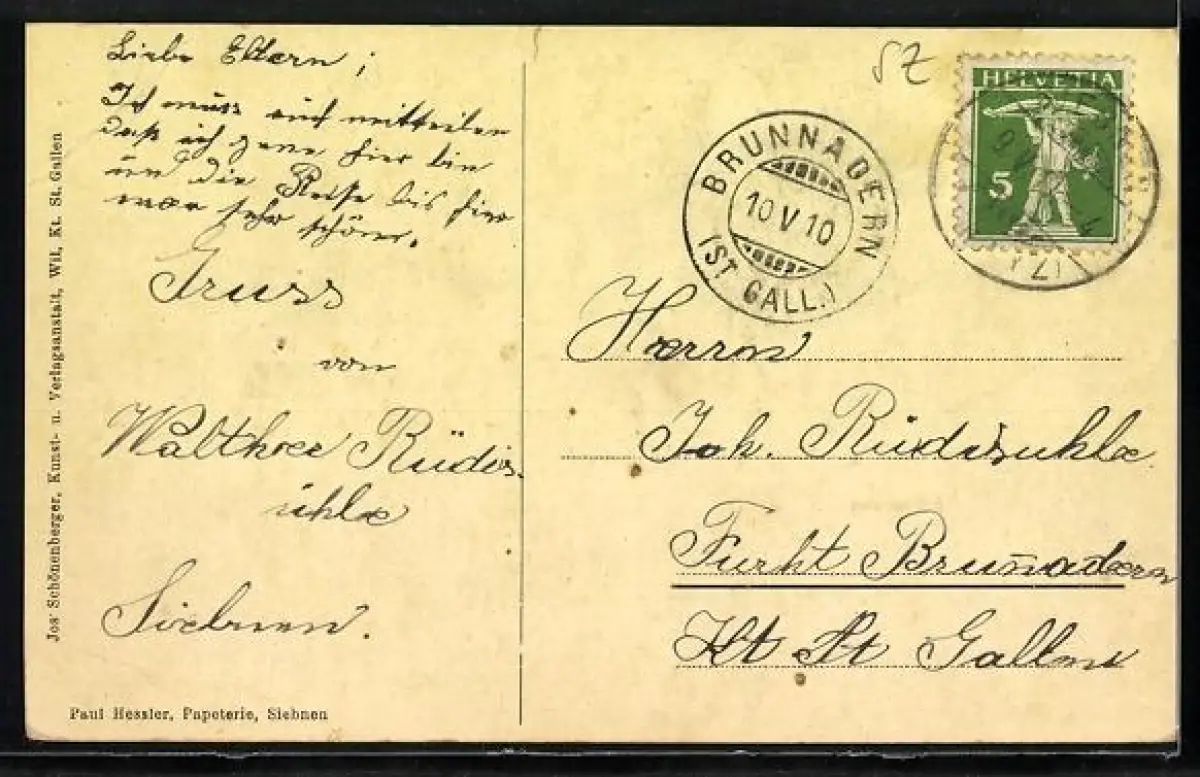 Liebe Eltern;
Ich muss euch mitteilen
daß ich gern hier bin
un die Reise bis hier
war sehr schön.
Gruss
von
Walther Rüdis
ühle
Siebnen.
Jos. Schönenberger, Kunst- u. Verlagsanstalt, Wil, Kt. St. Gallen
Paul Hessler, Papeterie, Siebnen
SZ
HELVETIA
5
BRUNNADERN
10 V 10
(ST. GALL.)
Herrn
Joh. Rüdisühle
Furkt Brunadern
Kt St Gallen